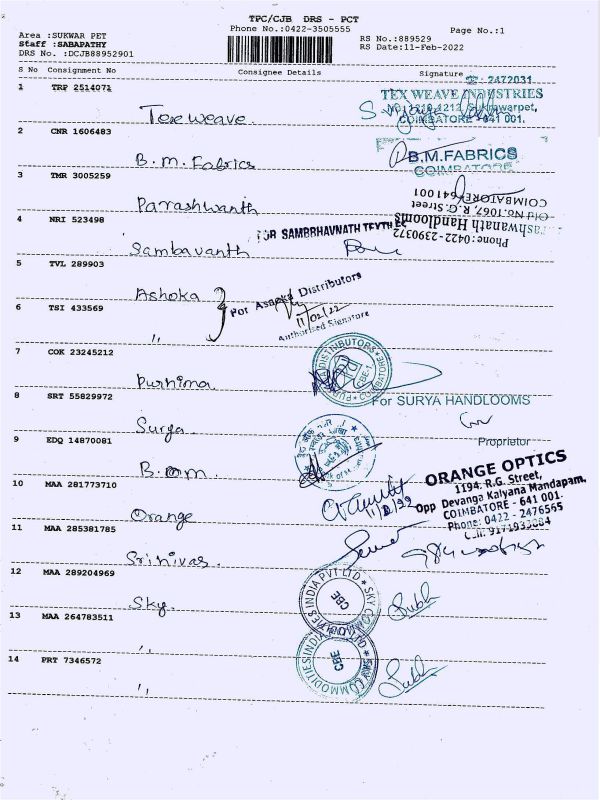 TPC/CJB DRS - PCT
Phone No.:0422-3505555
Page No.:1
Area :SUKWAR PET
Staff :SABAPATHY
DRS No. :DCJB88952901
RS No.:889529
RS Date:11-Feb-2022
S No Consignment No Consignee Details Signature
☎: 2472031
1 TRP 2514071
TEX WEAVE INDUSTRIES
COIMBATORE - 641 001.
Texweave.
2 CNR 1606483
B.M.FABRICS
COIMBATORE
B.m. Fabrics
3 TMR 3005259
COIMBATORE-641001
Old No.1067, R.G. Street
Parashwanth
Handlooms
Phone:0422-2390372
4 NRI 523498
FOR SAMBHAVNATH
Sambavanth
5 TVL 289903
Ashoka
For Ashoka Distributors
6 TSI 433569
11/02/22
Authorised Signature
"
7 COK 23245212
DISTRIBUTORS
COIMBATORE
CBE-1
Purnima
8 SRT 55829972
For SURYA HANDLOOMS
Surya
Proprietor
9 EDQ 14870081
B.om.
10 MAA 281773710
ORANGE OPTICS
1194, R.G. Street,
Opp Devanga Kalyana Mandapam,
COIMBATORE - 641 001.
Phone: 0422 - 2476565
Orange
11 MAA 285381785
Srinivas.
12 MAA 289204969
SKY COMMODITIES INDIA PVT LTD
CBE
Sky.
Subh
13 MAA 264783511
"
SKY COMMODITIES INDIA PVT LTD
CBE
14 PRT 7346572
Subh
"